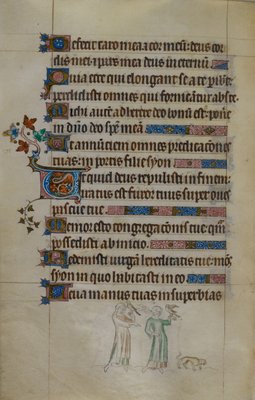 Defecit caro mea et cor meū: deus cor
dis mei et pars mea deus in eternū
Quia ecce qui elongant se a te pibūt
perdidisti omnes qui fornicātur abs te
Michi autē adherere deo bonū est: pone
in dño deo spē meā
Ut annūciem omnes predicationes
tuas: in portis filie syon
Ut quid deus repulisti in finem
iratus est furor tuus super oues
pascue tue
Memor esto congregacōnis tue: quā
possedisti ab inicio
Redemisti uirgā hereditatis tue: mōs
syon in quo habitasti in eo
Leua manus tuas in superbias